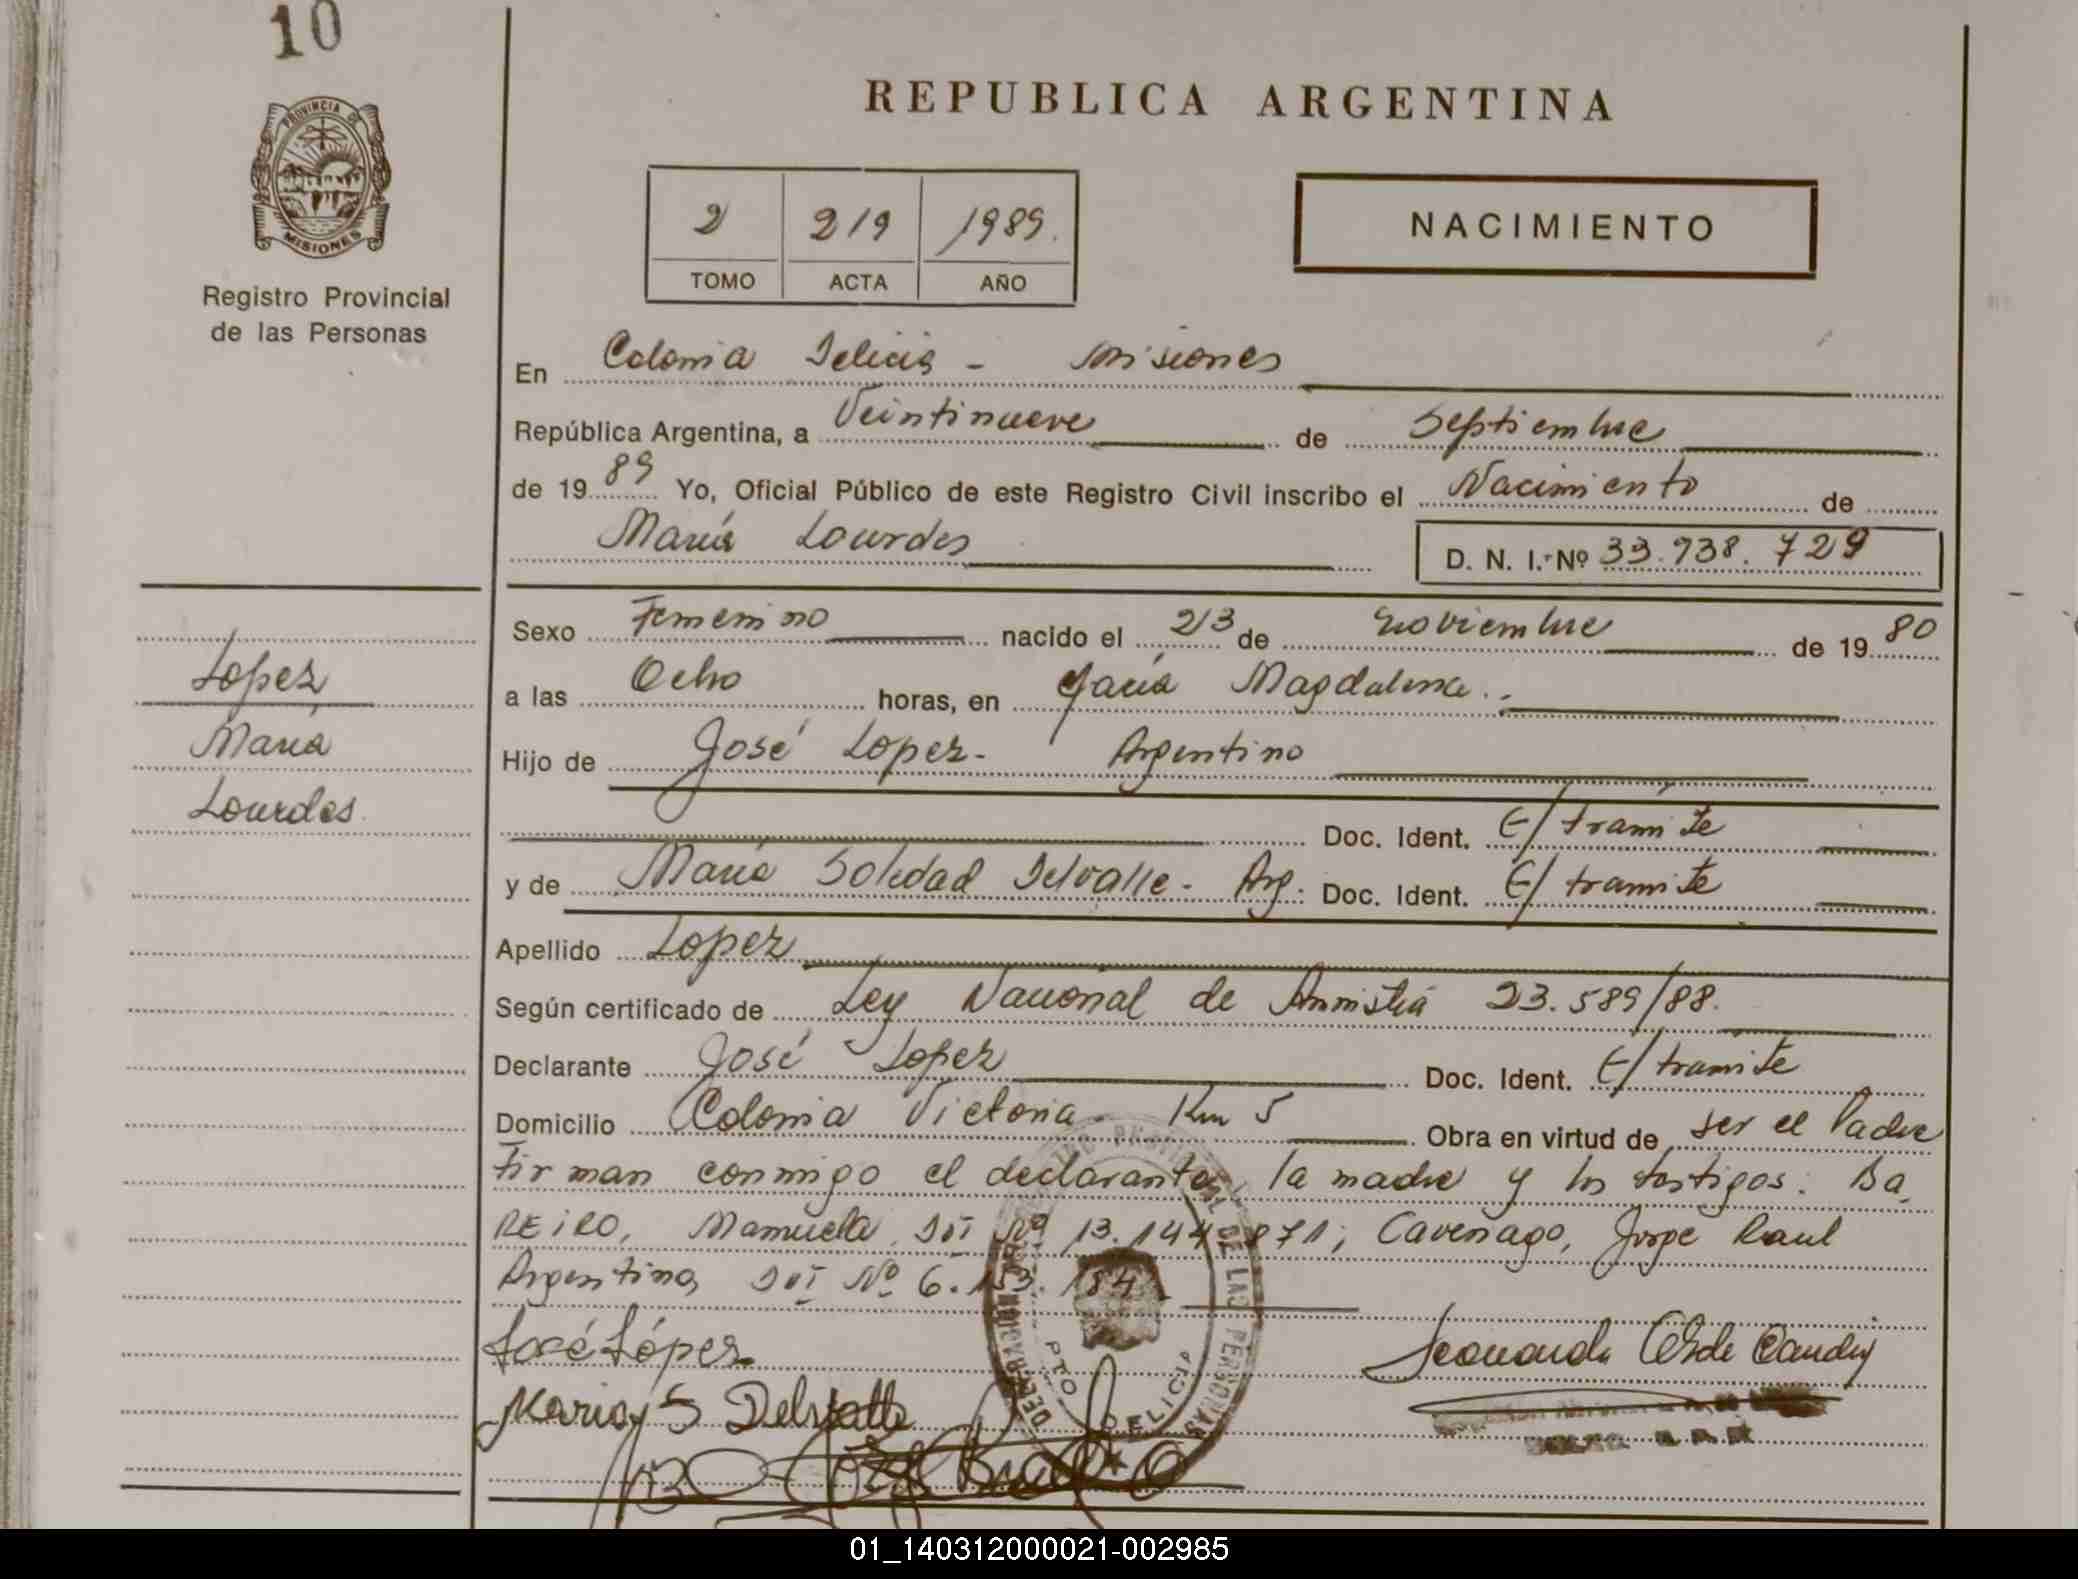 10
REPUBLICA ARGENTINA
PROVINCIA DE
MISIONES
Registro Provincial
de las Personas
2 219 1989.
TOMO ACTA AÑO
NACIMIENTO
En Colonia Delicia - Misiones
República Argentina, a Veintinueve de Septiembre
de 1989 Yo, Oficial Público de este Registro Civil inscribo el Nacimiento de
María Lourdes D. N. I. Nº 33.938.729
Sexo Femenino nacido el 23 de noviembre de 1980
Lopez
a las Ocho horas, en María Magdalena.
María
Hijo de José Lopez - Argentino
Lourdes.
Doc. Ident. E/ tramite
y de María Soledad Delvalle - Arg. Doc. Ident. E/ tramite
Apellido Lopez
Según certificado de Ley Nacional de Amnistia 23.589/88.
Declarante José Lopez Doc. Ident. E/ tramite
Domicilio Colonia Victoria - Km 5 Obra en virtud de ser el Padre
Firman conmigo el declarante, la madre y los testigos: Ba
REIRO, Manuela, DNI Nº 13.144.871; Cavenago, Jorge Raul
Argentino, DNI Nº 6. 184
José López
Maria S Delvalle
DE LAS PERSONAS
PTO DELICIA
01_140312000021-002985